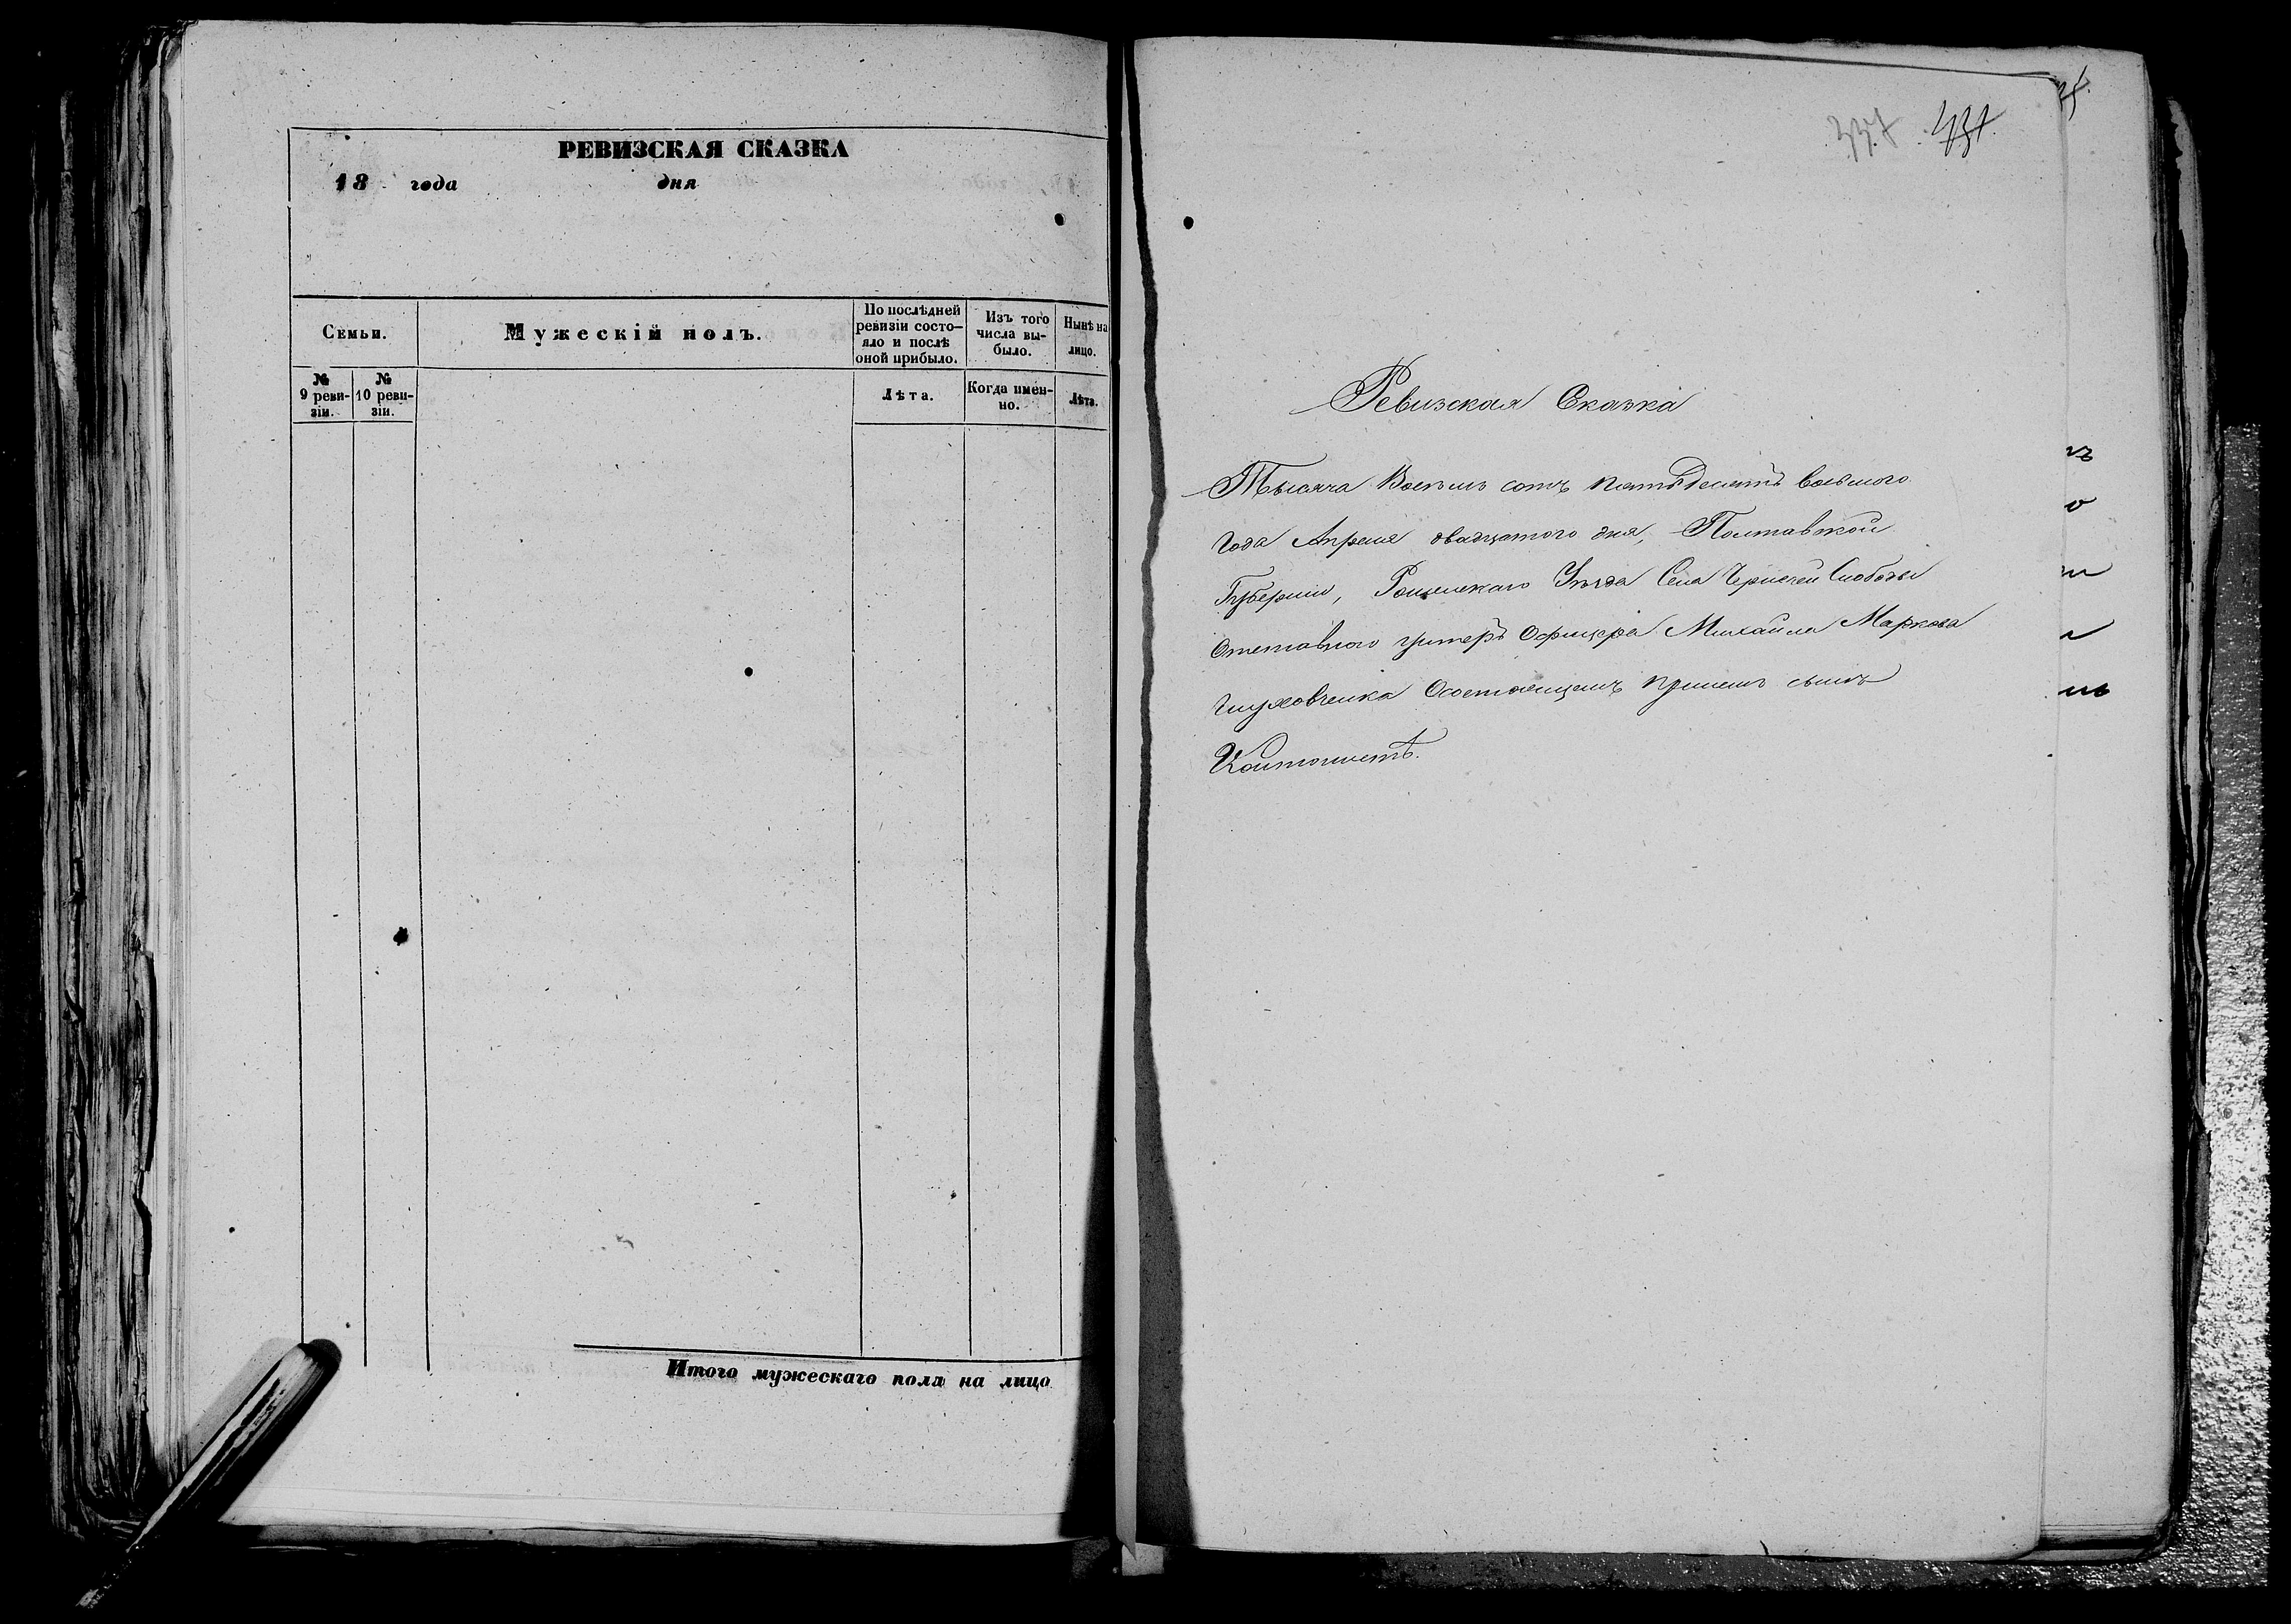 РЕВИЗСКАЯ СКАЗКА
18 года дня
Семьи.
Мужескій полъ.
По послѣдней ревизіи состо-
яло и послѣ
оной прибыло.
Изъ того
числа вы-
было.
Нынѣ на
лицо.
№
9 реви-
зіи.
№
10 реви-
зіи.
Лѣта.
Когда имен-
но.
Лѣта.
Итого мужескаго пола на лицо
337 431
Ревизская Сказка
Тысяча Восемь сотъ пятьдесятъ восьмого
года Апреля двадцатого дня, Полтавской
Губернии, Роменскаго Уезда Села Чернечей Слободы
Отставного унтеръ Офицера Михаила Маркова
Глуховченка Осостоящемъ принемъ сынъ
Кантонистъ.